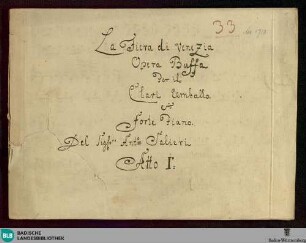 33
La Fiera di Venezia
Opera Buffa
Per il
Clavi Cembalo
e
Forte Piano.
Del Sigre Ant: Salieri
Atto I.
BLB
BADISCHE
LANDESBIBLIOTHEK
Baden-Württemberg